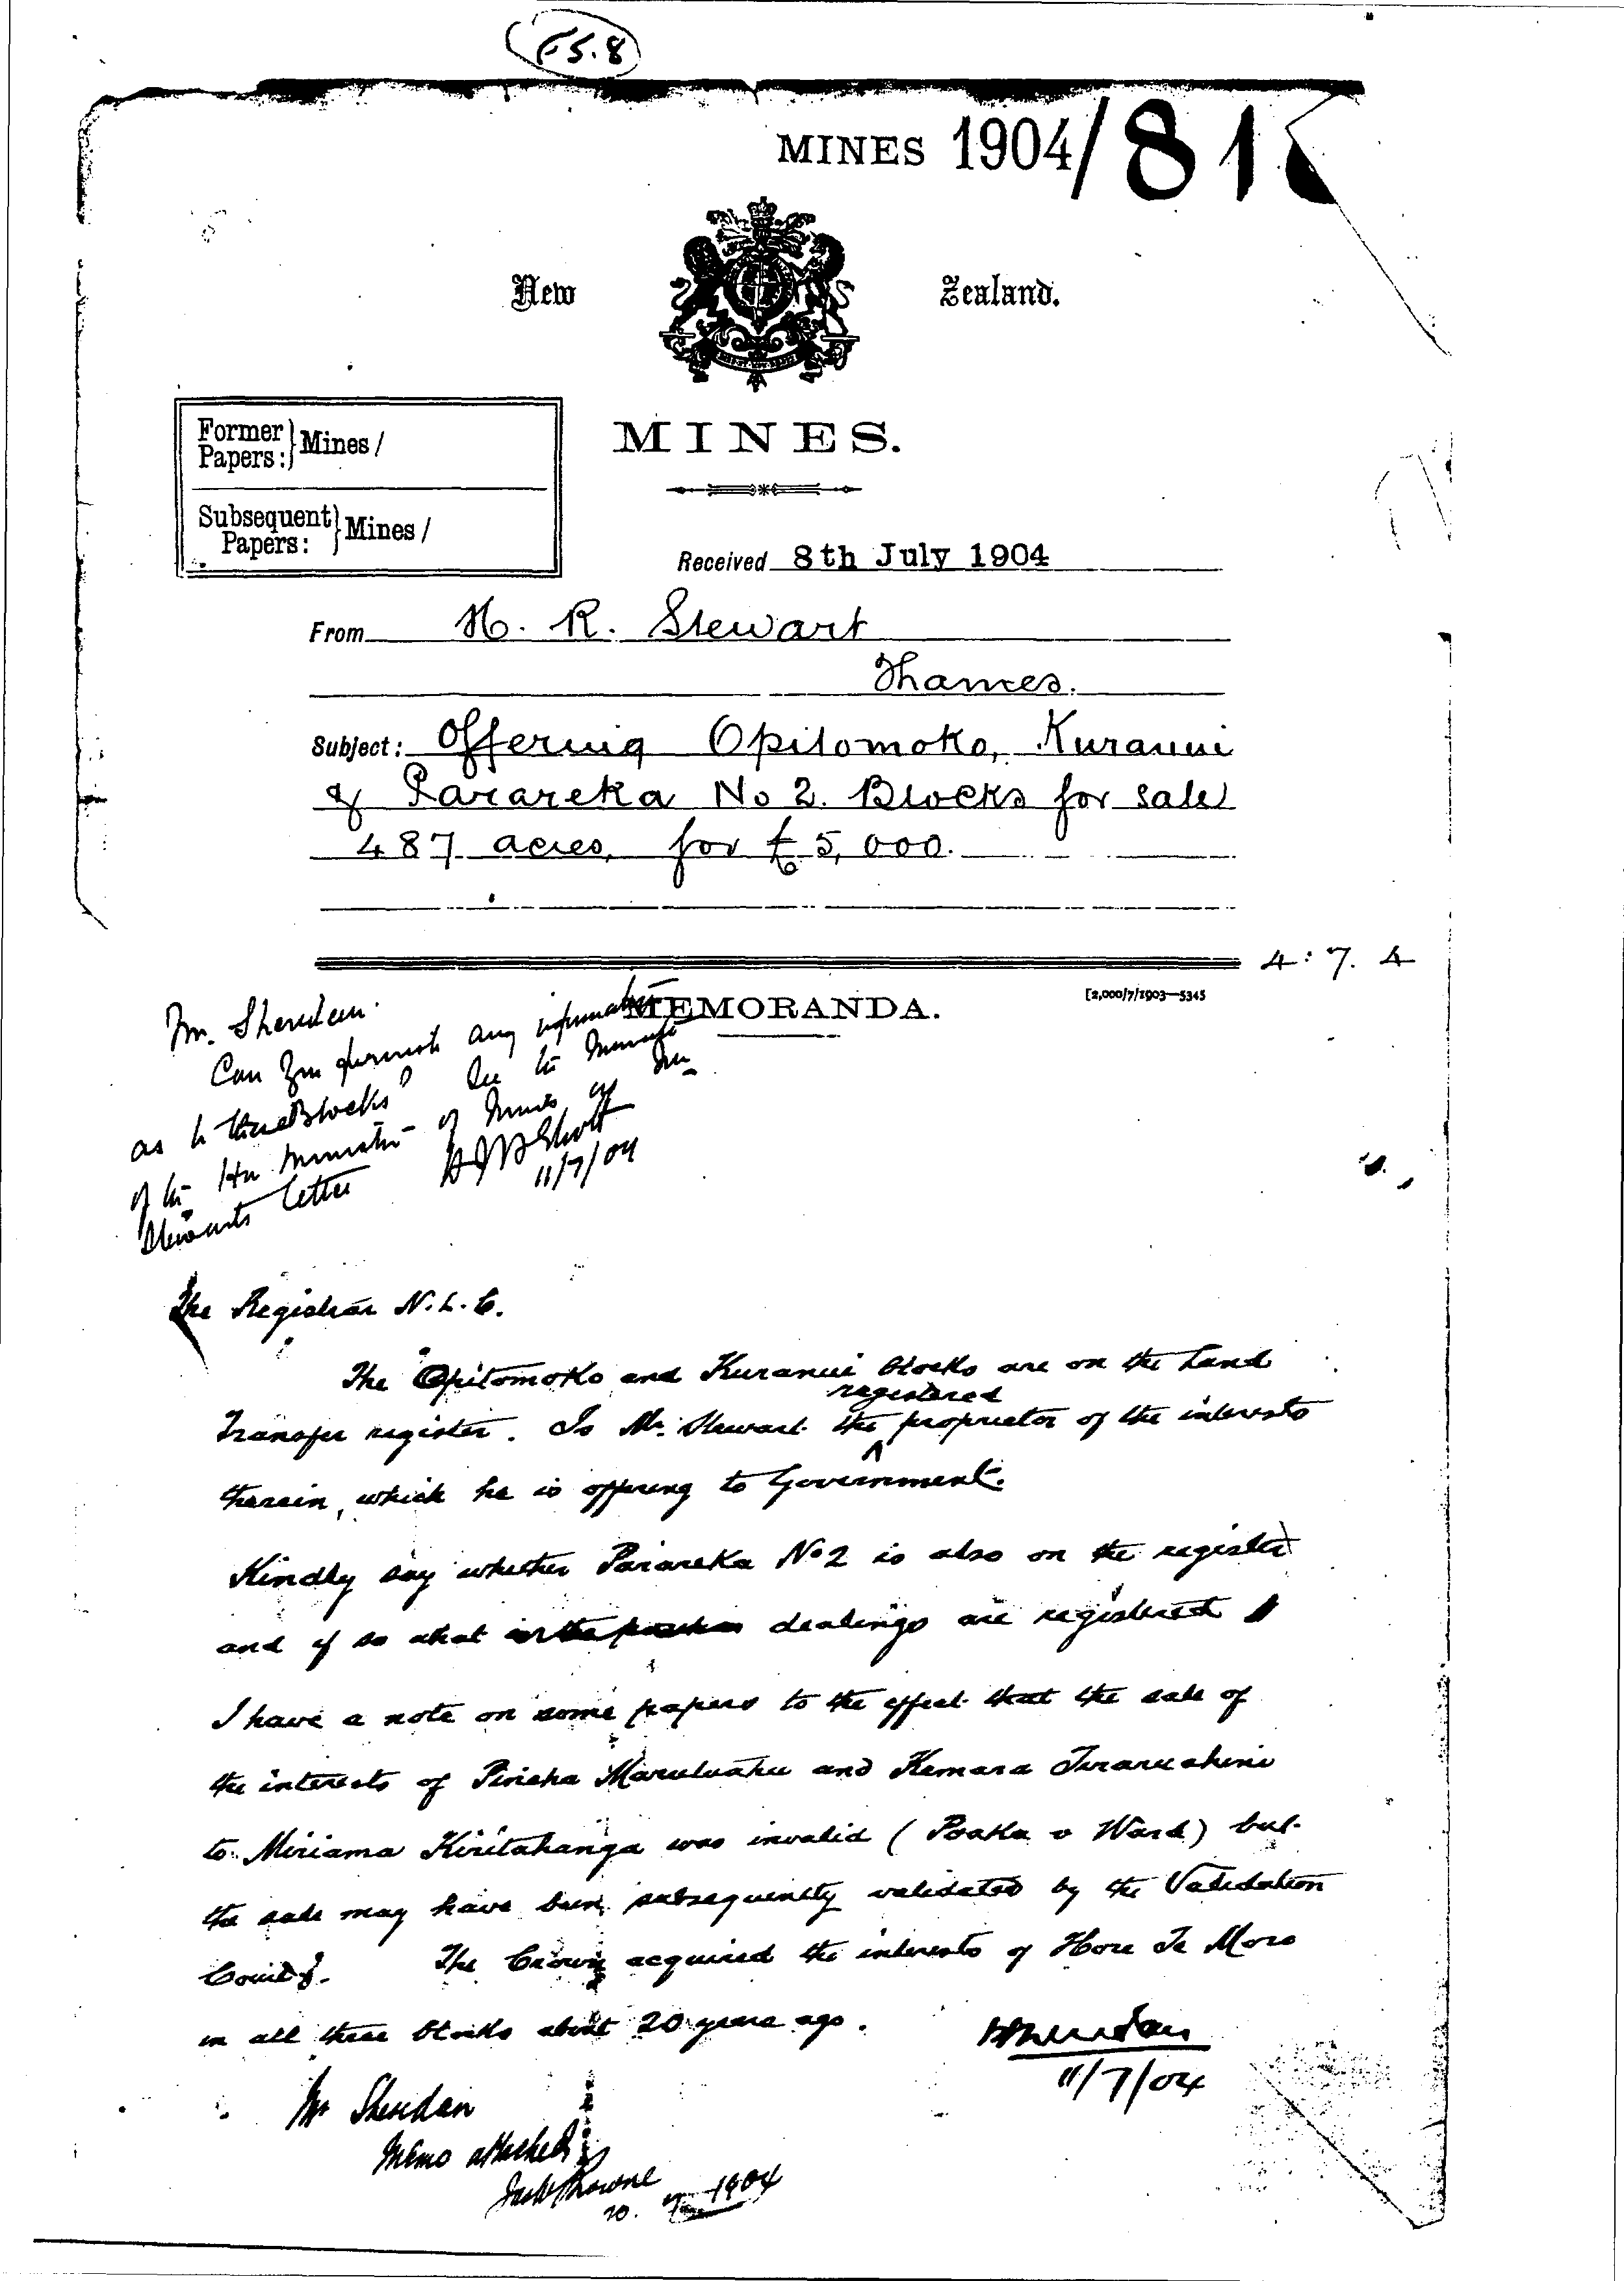 F5.8
MINES 1904/81
New Zealand.
Former Papers: } Mines /
Subsequent Papers: } Mines /
MINES.
Received 8th July 1904
From H. R. Stewart
Thames.
Subject: Offering Opitomoko, Kuranui
& Parareka No 2. Blocks for sale
487 acres, for £5,000.
4:7.4
[2,000/7/1903—5345
MEMORANDA.
Mr. Sheridan.
Can you furnish any information
as to these Blocks? See the minute
of the Hon Minister of Mines on Mr
Stewarts letter
11/7/04
The Registrar N.L.C.
The Opitomoko and Kuranui blocks are on the Land
registered
Transfer register. Is Mr. Stewart the ^ proprietor of the interests
therein, which he is offering to Government.
Kindly say whether Parareka No 2 is also on the register
and if so what dealings are registered
I have a note on some papers to the effect that the sale of
the interests of Pineha Marutuahu and Kemara
to Miriama Kiritahanga was invalid (Poaka v Ward) but
the sale may have been subsequently validated by the Validation
Court. The Crown acquired the interests of Hori Te More
in all these blocks about 20 years ago.
Sheridan
11/7/04
Mr Sheridan
Memo attached
20. 7 1904